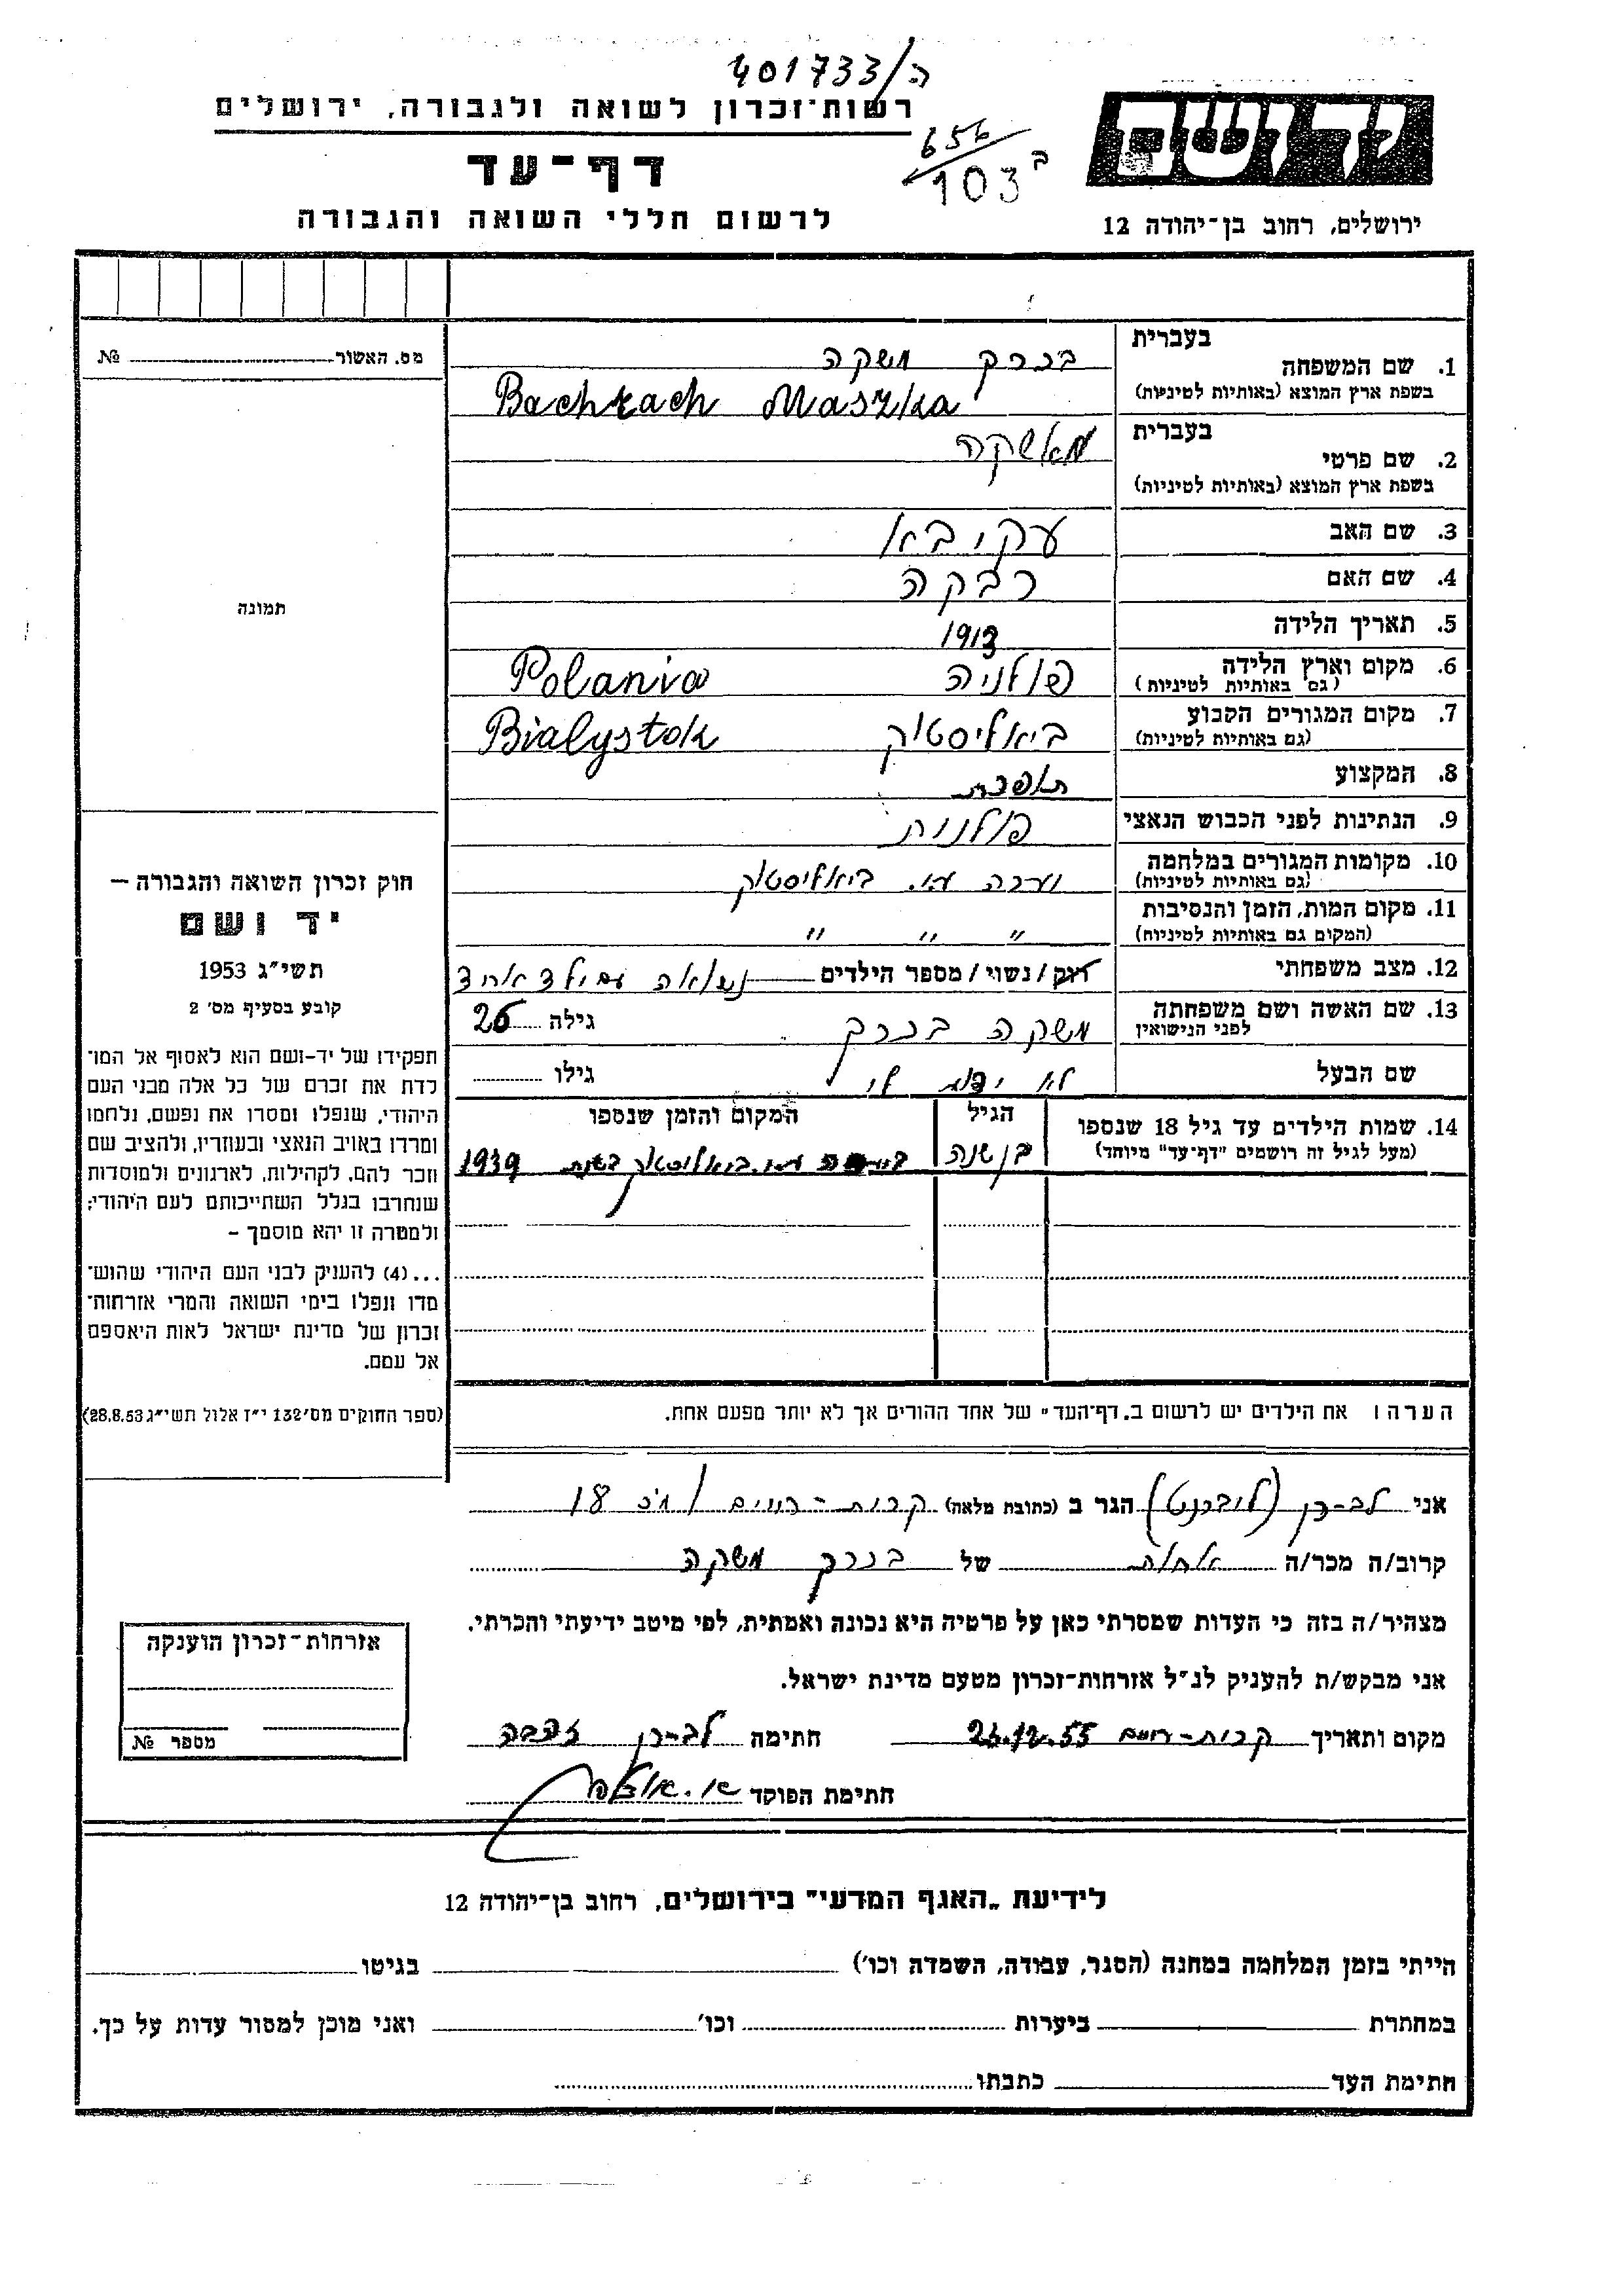 401733/ה
רשות־זכרון לשואה ולגבורה, ירושלים
דף־עד
לרשום חללי השואה והגבורה
656
103 ב
ידושם
ירושלים, רחוב בן־יהודה 12
בעברית
1. שם המשפחה בכרך משקה
בשפת ארץ המוצא (באותיות לטיניות) Bachrach Maszka
בעברית
2. שם פרטי מאשקה
בשפת ארץ המוצא (באותיות לטיניות)
3. שם האב עקיבא
4. שם האם רבקה
5. תאריך הלידה 1913
6. מקום וארץ הלידה פולניה Polania
(גם באותיות לטיניות)
7. מקום המגורים הקבוע ביאליסטוק Bialystok
(גם באותיות לטיניות)
8. המקצוע תופרת
9. הנתינות לפני הכבוש הנאצי פולנית
10. מקומות המגורים במלחמה ביאליסטוק
(גם באותיות לטיניות)
11. מקום המות, הזמן והנסיבות " " "
(המקום גם באותיות לטיניות)
12. מצב משפחתי רוק/נשוי/מספר הילדים נשואה עם ילד אחד
13. שם האשה ושם משפחתה משקה בכרך גילה 26
לפני הנישואין
שם הבעל לא ידוע לי גילו
14. שמות הילדים עד גיל 18 שנספו הגיל המקום והזמן שנספו
(מעל לגיל זה רושמים "דף־עד" מיוחד) בן שנה ביאליסטוק בשנת 1939
הערה ו את הילדים יש לרשום ב„דף־העד" של אחד ההורים אך לא יותר מפעם אחת.
מס. האשור №
תמונה
חוק זכרון השואה והגבורה —
יד ושם
תשי"ג 1953
קובע בסעיף מס' 2
תפקידו של יד־ושם הוא לאסוף אל המו־
לדת את זכרם של כל אלה מבני העם
היהודי, שנפלו ומסרו את נפשם, נלחמו
ומרדו באויב הנאצי ובעוזריו, ולהציב שם
וזכר להם, לקהילות, לארגונים ולמוסדות
שנחרבו בגלל השתייכותם לעם היהודי;
ולמטרה זו יהא מוסמך —
...(4) להעניק לבני העם היהודי שהוש־
מדו ונפלו בימי השואה והמרי אזרחות־
זכרון של מדינת ישראל לאות היאספם
אל עמם.
(ספר החוקים מס' 132 י"ז אלול תשי"ג 28.8.53)
אני לב־רן (ליברנט) הגר ב (כתובת מלאה) קרית־חיים 18
קרוב/ה מכר/ה אחות של בכרך משקה
מצהיר/ה בזה כי העדות שמסרתי כאן על פרטיה היא נכונה ואמתית, לפי מיטב ידיעתי והכרתי.
אני מבקש/ת להעניק לנ"ל אזרחות־זכרון מטעם מדינת ישראל.
מקום ותאריך קרית־חיים 23.12.55 חתימה לב־רן זהבה
חתימת הפוקד
אזרחות־זכרון הוענקה
מספר №
לידיעת „האגף המדעי" בירושלים, רחוב בן־יהודה 12
הייתי בזמן המלחמה במחנה (הסגר, עבודה, השמדה וכו') בגיטו
במחתרת ביערות וכו' ואני מוכן למסור עדות על כך.
חתימת העד כתבתו